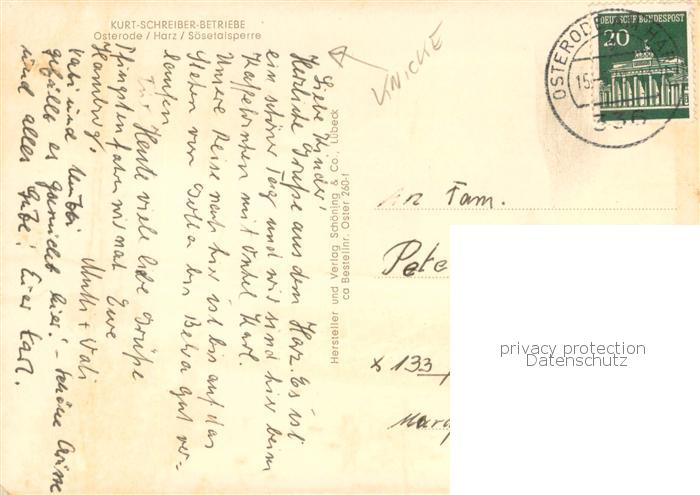 KURT-SCHREIBER-BETRIEBE
Osterode / Harz / Sösetalsperre
KNICKE
Liebe Kinder
Herzliche Grüße aus dem Harz. Es ist
ein schöner Tag und wir sind hier beim
Kaffeetrinken mit Onkel Karl.
Unsere Reise nach hier ist bis auf das
Stehen von Gotha bis Bebra gut ver=
laufen
Für Heute viele liebe Grüße
Pfingsten fahren wir nach Eure
Hamburg. Mutti + Vati
Vati und Mutti
gefällt es garnicht hier! - Schöne Grüße
und alles Gute! Euer Karl.
Hersteller und Verlag Schöning & Co., Lübeck
ca Bestellnr. Oster 260-f
DEUTSCHE BUNDESPOST
20
OSTERODE AM HARZ
15.
336
An Fam.
Pete
x 133
privacy protection
Datenschutz